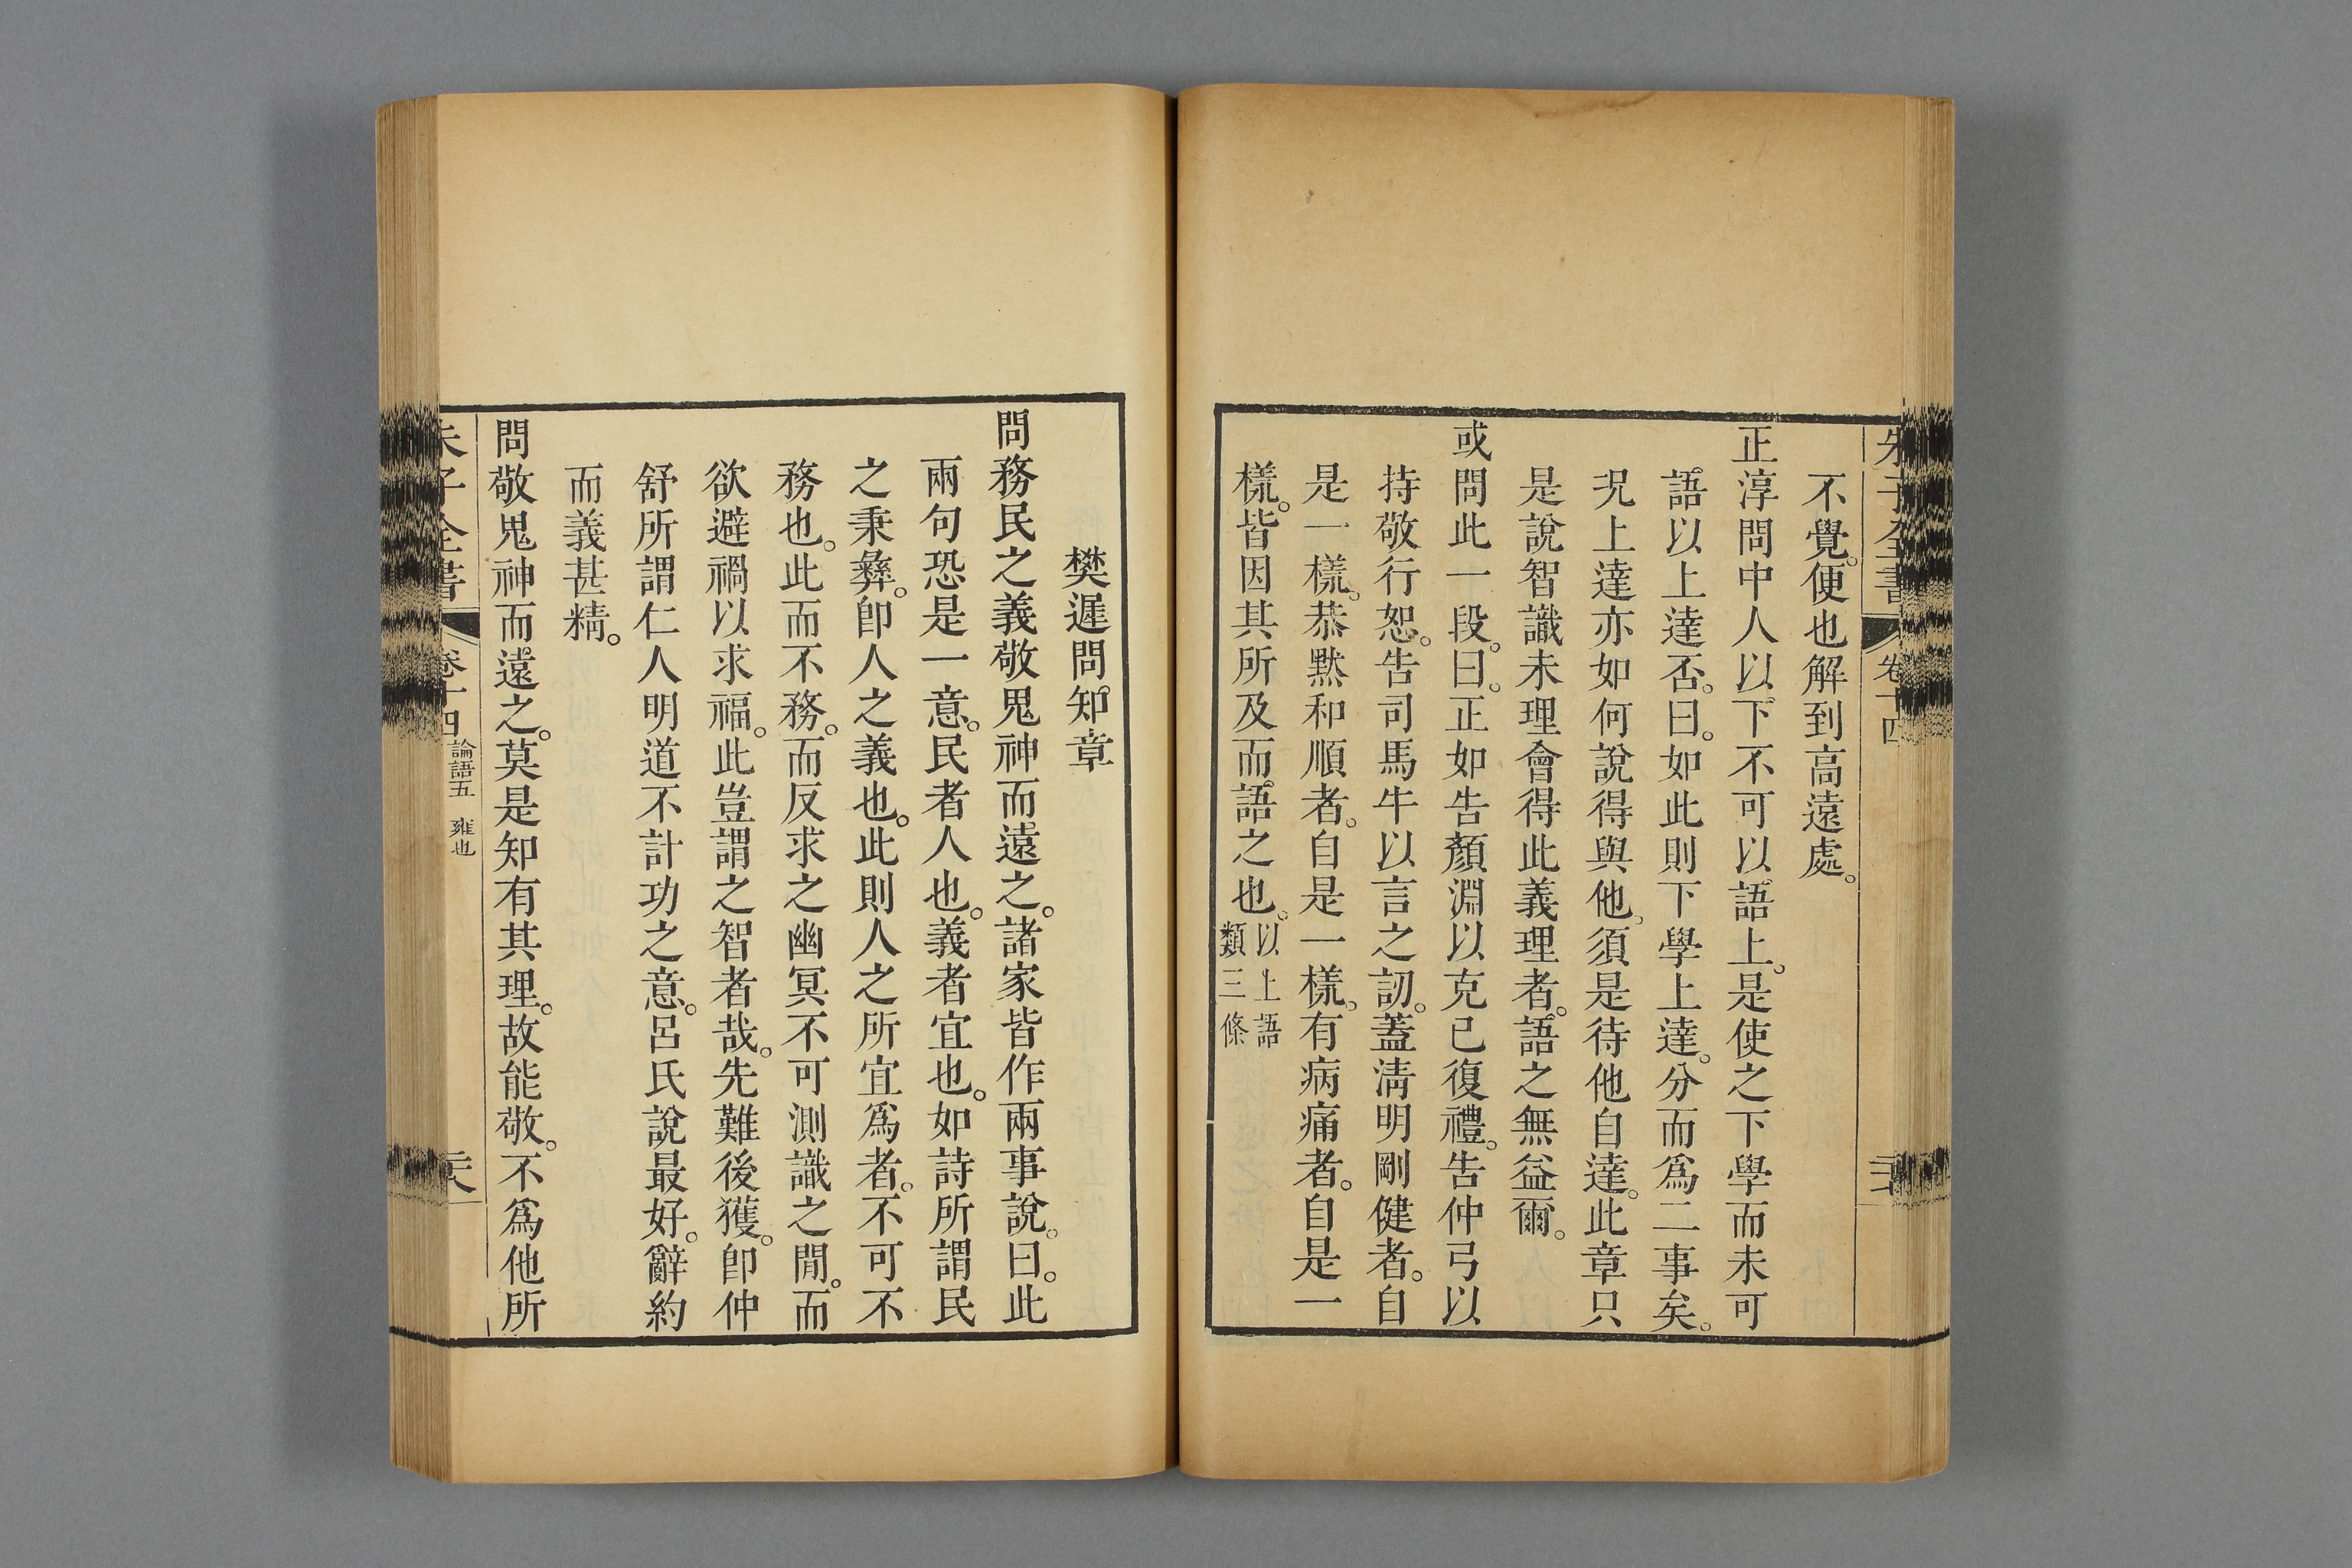 朱子全書 卷十四
不覺。便也解到高遠處。
正淳問中人以下不可以語上。是使之下學而未可
語以上達否。曰。如此則下學上達。分而爲二事矣。
況上達亦如何說得與他。須是待他自達。此章只
是說智識未理會得此義理者。語之無益爾。
或問此一段。曰。正如告顏淵以克己復禮。告仲弓以
持敬行恕。告司馬牛以言之訒。蓋淸明剛健者。自
是一樣。恭默和順者。自是一樣。有病痛者。自是一
樣。皆因其所及而語之也。以上語
類三條
樊遲問知章
問務民之義敬鬼神而遠之。諸家皆作兩事說。曰。此
兩句恐是一意。民者人也。義者宜也。如詩所謂民
之秉彝。卽人之義也。此則人之所宜爲者。不可不
務也。此而不務。而反求之幽冥不可測識之閒。而
欲避禍以求福。此豈謂之智者哉。先難後獲。卽仲
舒所謂仁人明道不計功之意。呂氏說最好。辭約
而義甚精。
問敬鬼神而遠之。莫是知有其理。故能敬。不爲他所
朱子全書 卷十四 論語五 雍也